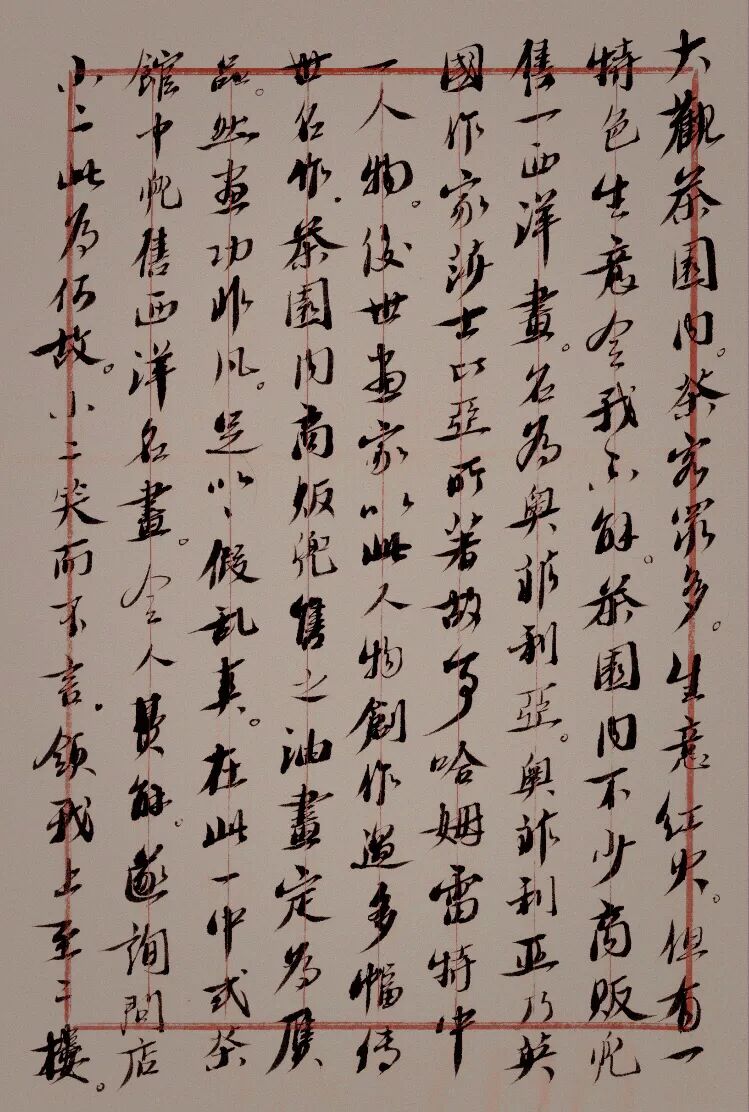 大觀茶園內。茶客眾多。生意红火。但有一
特色生意令我不解。茶園內不少商販兜
售一西洋畫。名為奧菲利亞。奧菲利亚乃英
國作家莎士比亞所著故事哈姆雷特中
一人物。後世畫家以此人物創作過多幅傳
世名作。茶園内商販兜售之油畫定為贋
品。然畫功非凡。足以以假乱真。在此一中式茶
館中兜售西洋名畫。令人費解。遂詢問店
小二此為何故。小二笑而不言。領我上至二樓。